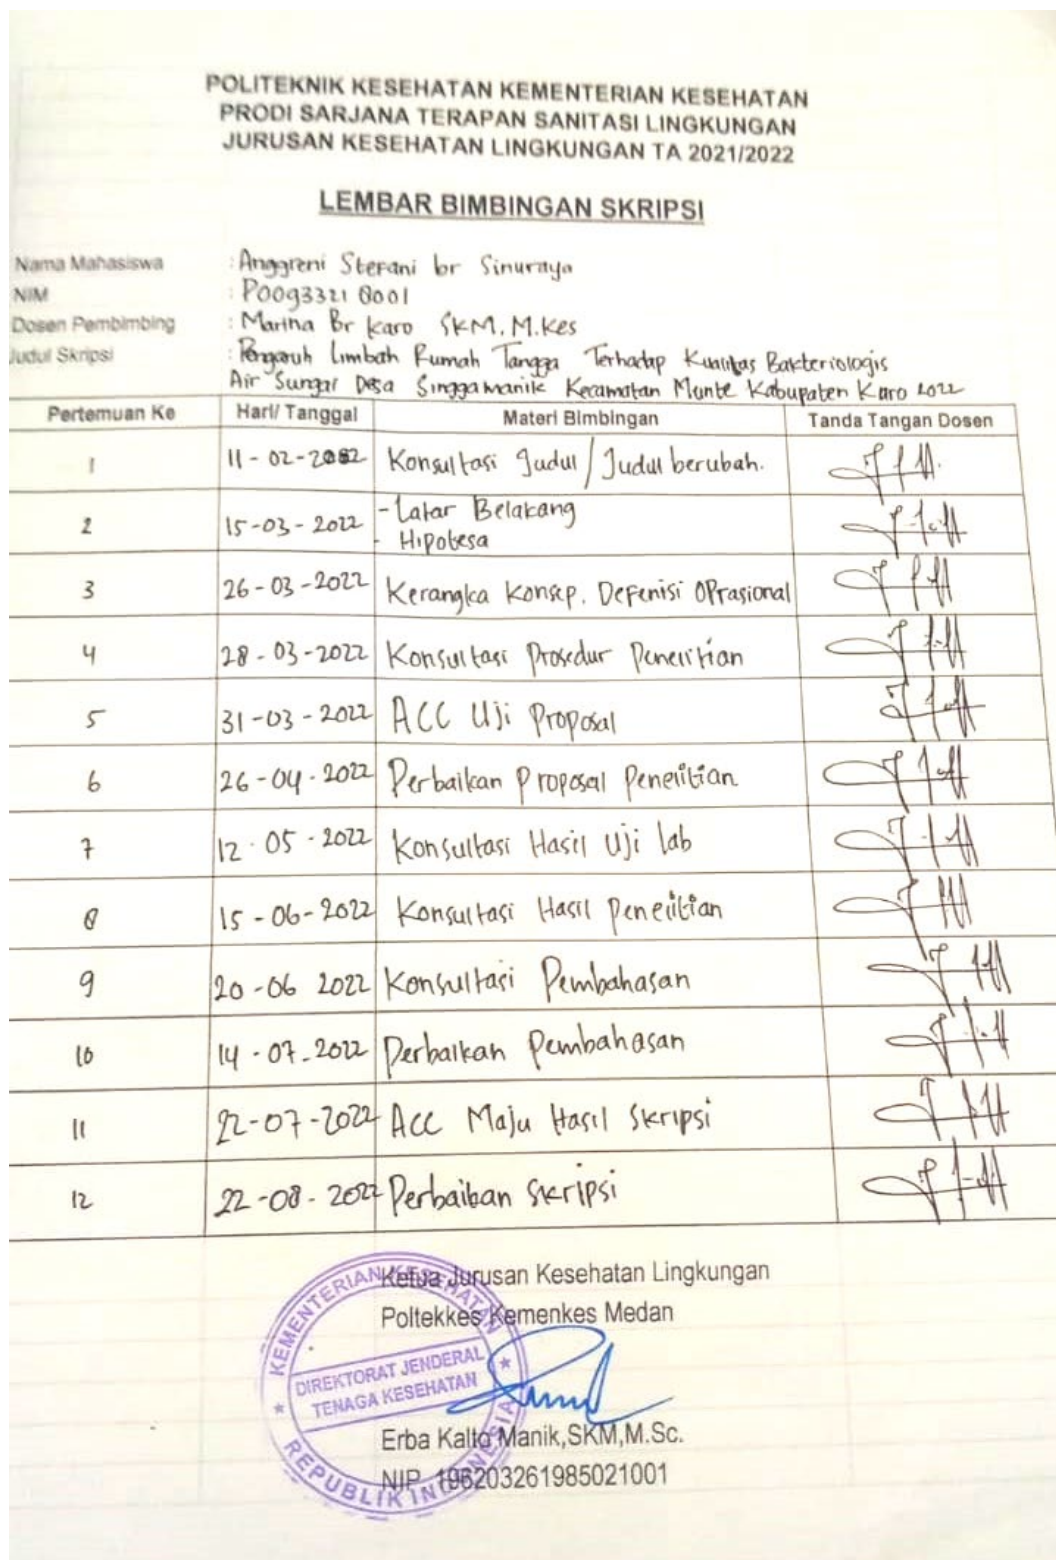 POLITEKNIK KESEHATAN KEMENTERIAN KESEHATAN
PRODI SARJANA TERAPAN SANITASI LINGKUNGAN
JURUSAN KESEHATAN LINGKUNGAN TA 2021/2022
LEMBAR BIMBINGAN SKRIPSI
Nama Mahasiswa : Anggreni Stefani br Sinuraya
NIM : P00933218001
Dosen Pembimbing : Marina Br Karo SKM, M.Kes
Judul Skripsi : Pengaruh Limbah Rumah Tangga Terhadap Kualitas Bakteriologis
Air Sungai Desa Singgamanik Kecamatan Munte Kabupaten Karo 2022
Pertemuan Ke Hari/ Tanggal Materi Bimbingan Tanda Tangan Dosen
1 11-02-2022 Konsultasi Judul / Judul berubah.
2 15-03-2022 - Latar Belakang
- Hipotesa
3 26-03-2022 Kerangka Konsep. Defenisi OPrasional
4 28-03-2022 Konsultasi Prosedur Penelitian
5 31-03-2022 ACC Uji Proposal
6 26-04-2022 Perbaikan Proposal Penelitian
7 12-05-2022 Konsultasi Hasil Uji lab
8 15-06-2022 Konsultasi Hasil Penelitian
9 20-06 2022 Konsultasi Pembahasan
10 14-07-2022 Perbaikan Pembahasan
11 22-07-2022 ACC Maju Hasil Skripsi
12 22-08-2022 Perbaikan Skripsi
Ketua Jurusan Kesehatan Lingkungan
Poltekkes Kemenkes Medan
KEMENTERIAN KESEHATAN
DIREKTORAT JENDERAL
TENAGA KESEHATAN
REPUBLIK INDONESIA
Erba Kalto Manik,SKM,M.Sc.
NIP. 196203261985021001